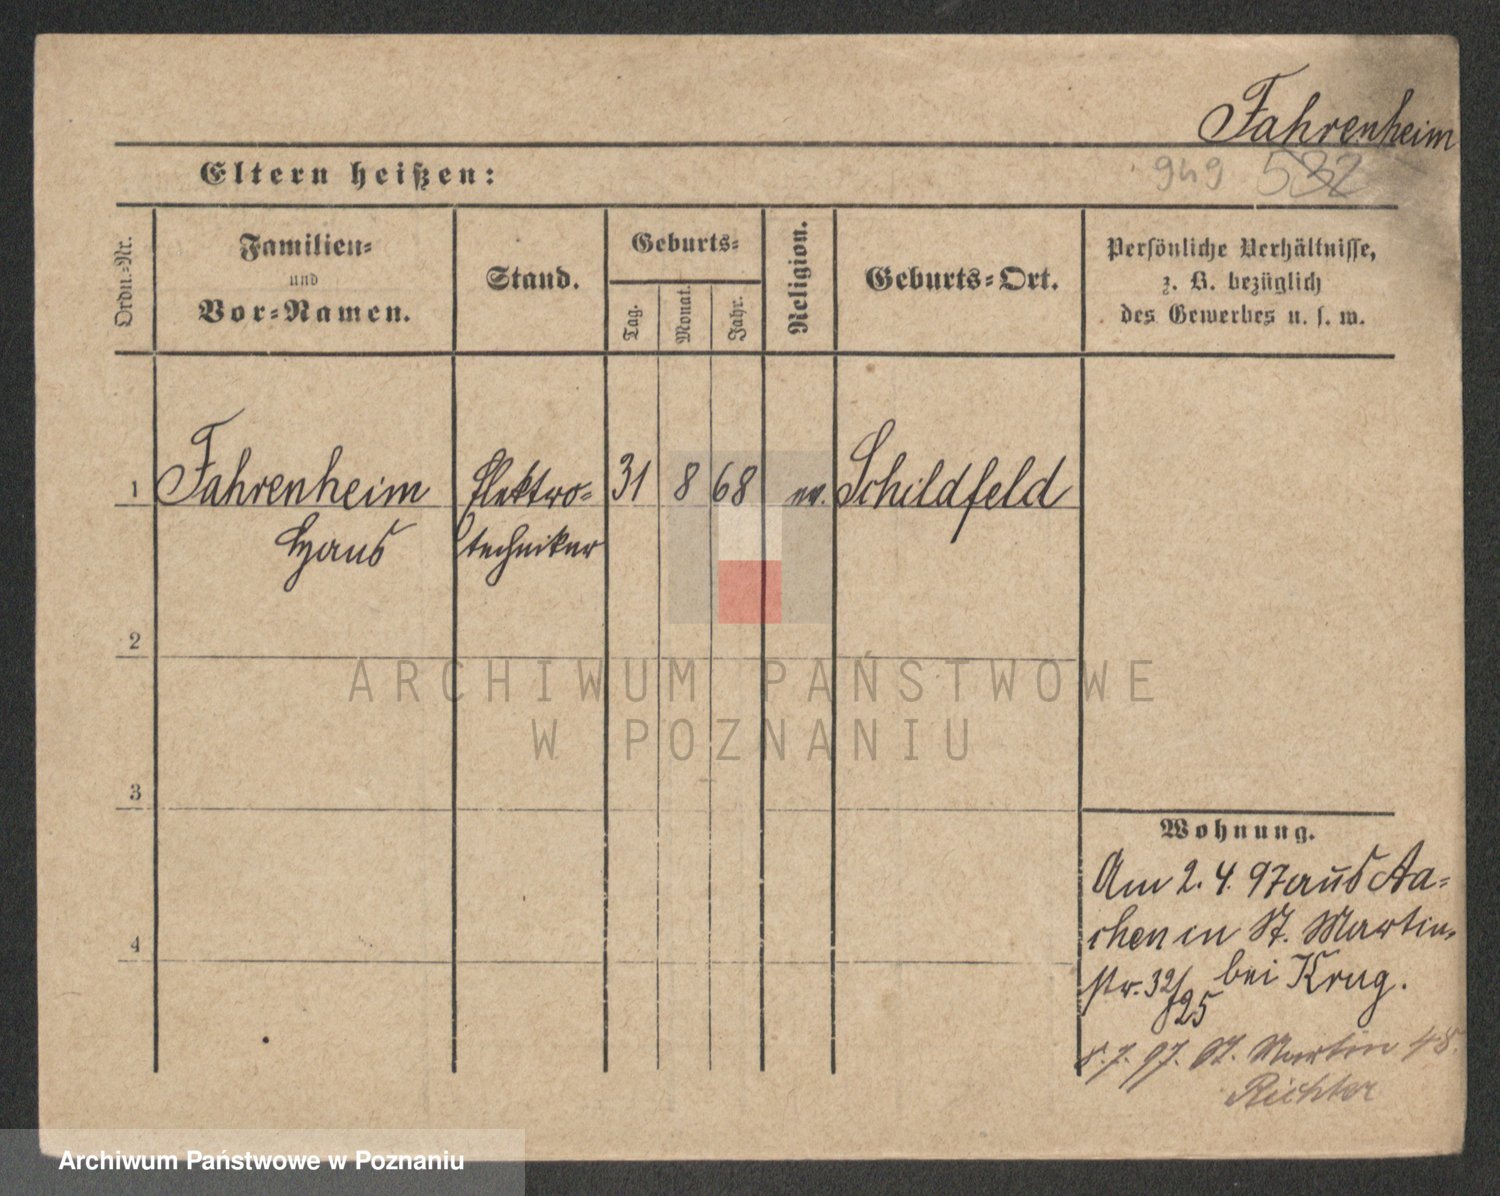 Fahrenheim
Eltern heißen:
949 532
Ordn.=Nr.
Familien=
und
Vor=Namen.
Stand.
Geburts=
Tag.
Monat.
Jahr.
Religion.
Geburts=Ort.
Persönliche Verhältnisse,
z. B. bezüglich
des Gewerbes u. s. w.
1 Fahrenheim Elektro= 31 8 68 ev. Schildfeld
Hans techniker
2
3
4
Wohnung.
Am 2. 4. 97 aus Aa=
chen in St. Martin=
str. 32/25 bei Krug.
8. 7. 97. St. Martin 48.
Richter
ARCHIWUM PAŃSTWOWE
W POZNANIU
Archiwum Państwowe w Poznaniu